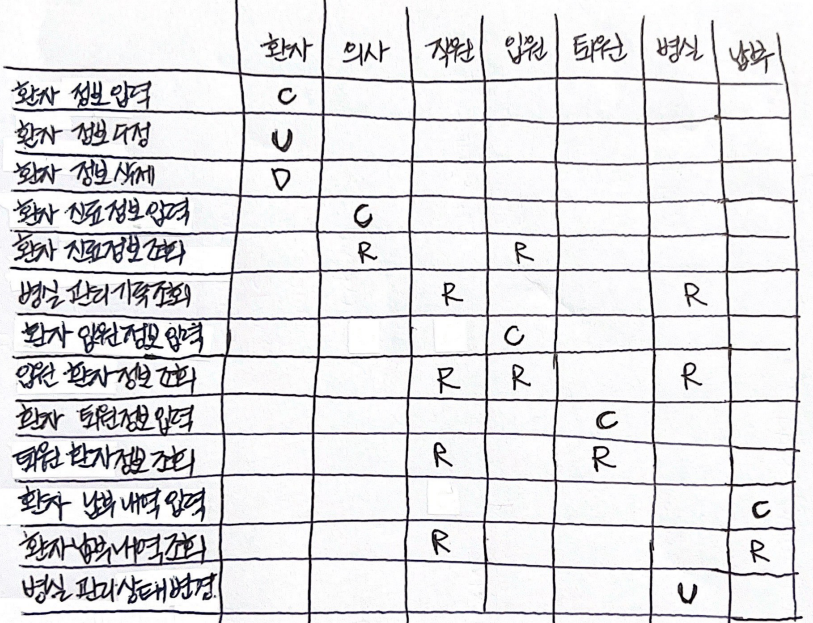 환자 의사 직원 입원 퇴원 병실 납부
환자 정보 입력 C
환자 정보 수정 U
환자 정보 삭제 D
환자 진료 정보 입력 C
환자 진료정보 조회 R R
병실 관리기록조회 R R
환자 입원정보 입력 C
입원 환자 정보 조회 R R R
환자 퇴원정보 입력 C
퇴원 환자정보 조회 R R
환자 납부내역 입력 C
환자 납부내역 조회 R R
병실 관리상태변경 U